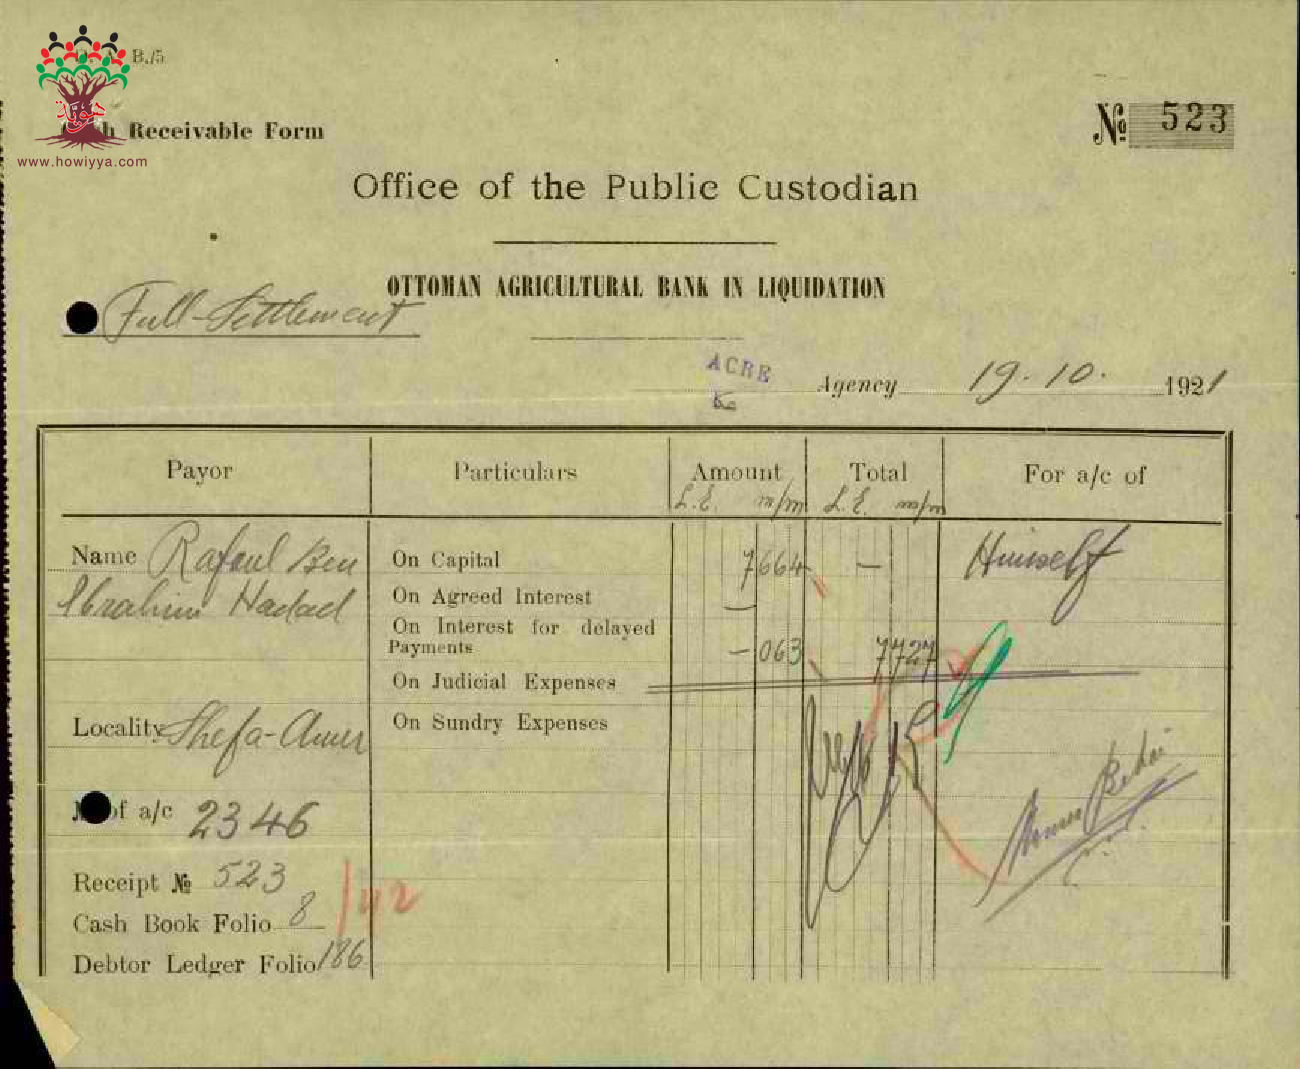 B./5
هوية
www.howiyya.com
Receivable Form
№ 523
Office of the Public Custodian
OTTOMAN AGRICULTURAL BANK IN LIQUIDATION
Full-Settlement
ACRE Agency 19.10. 1921
Payor Particulars Amount Total For a/c of
L.E. m/m L.E. m/m
Name Rafoul Ben On Capital 7 664 — Himself
Ibrahim Hadad On Agreed Interest —
On Interest for delayed
Payments — 063 7 727
On Judicial Expenses
Locality Shefa-Amer On Sundry Expenses
of a/c 2346
Receipt № 523
Cash Book Folio 8 /42
Debtor Ledger Folio 186